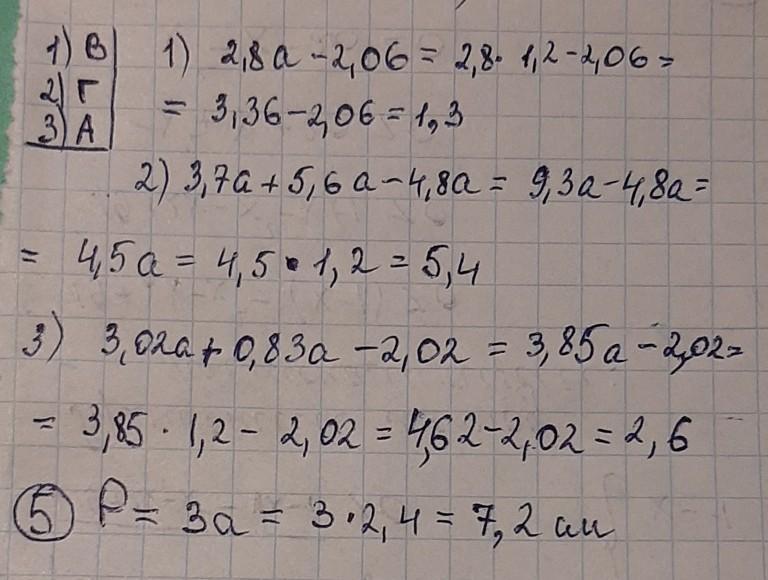 1) В
2) Г
3) А
1) 2,8а - 2,06 = 2,8 · 1,2 - 2,06 =
= 3,36 - 2,06 = 1,3
2) 3,7а + 5,6а - 4,8а = 9,3а - 4,8а =
= 4,5а = 4,5 · 1,2 = 5,4
3) 3,02а + 0,83а - 2,02 = 3,85а - 2,02 =
= 3,85 · 1,2 - 2,02 = 4,62 - 2,02 = 2,6
5 P = 3а = 3 · 2,4 = 7,2 см